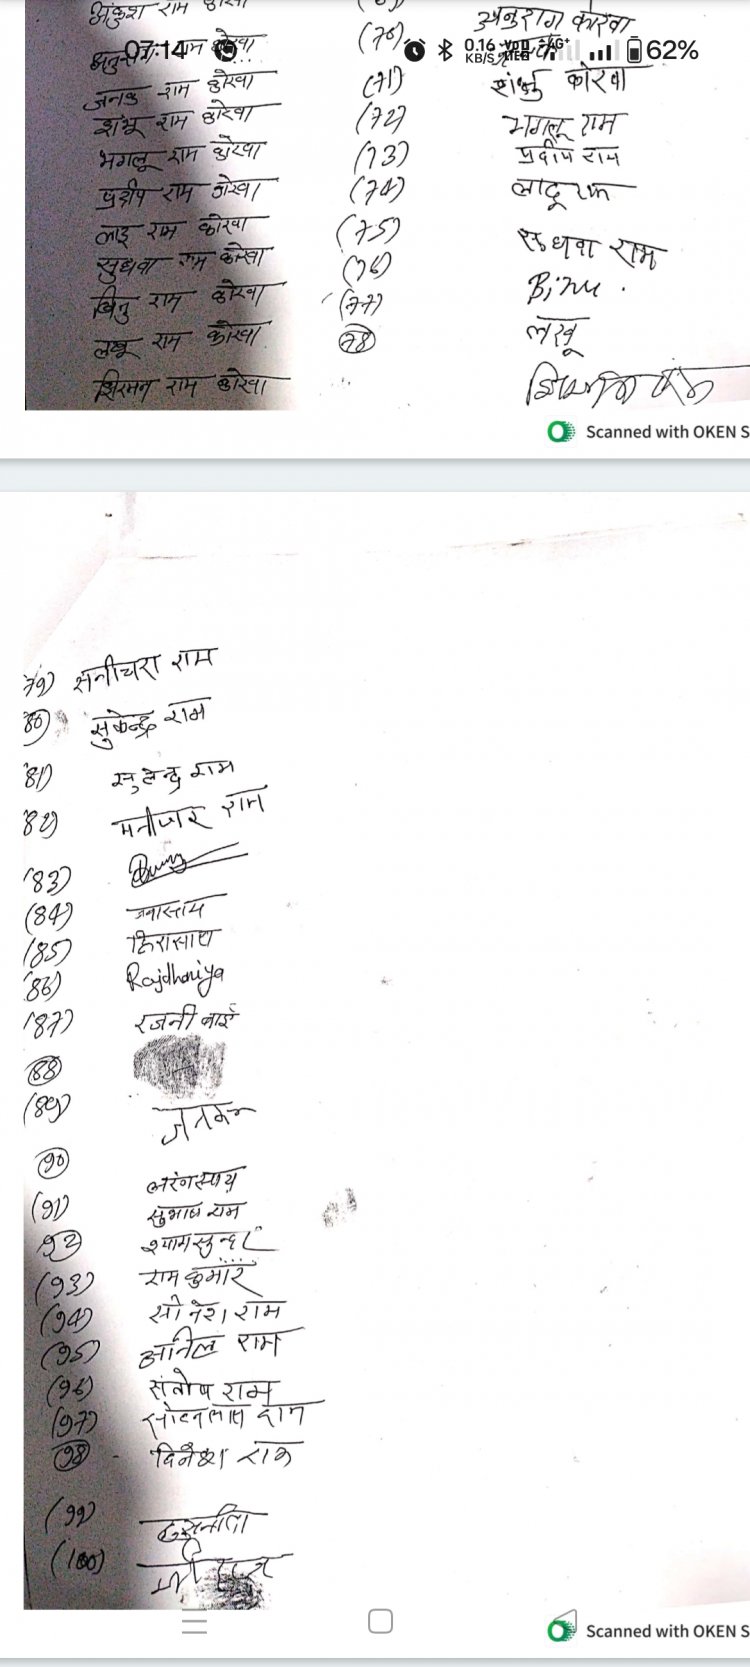 अंकुश राम
अनुराग कोरवा
07:14 0.16 KB/S 4G+ 62%
(70)
जनकु राम कोरवा (71) शंभु कोरवा
शंभू राम कोरवा (72) भगलू राम
भगलू राम कोरवा (73) प्रदीप राम
प्रदीप राम कोरवा (74) लादू राम
लादू राम कोरवा (75) सुधवा राम
सुधवा राम कोरवा (76) Binu.
बिनु राम कोरवा (77) लखू
लखू राम कोरवा (78)
शिरमन राम कोरवा
Scanned with OKEN S
79) सनीचरा राम
80) सुकेन्द्र राम
81) सुलेन्द्र राम
82) मनीजर राम
(83)
(84) जनासाय
(85) हिरासाय
(86) Rajdhaniya
(87) रजनी बाई
(88)
(89)
(90)
(91) सुभाष राम
92 श्यामसुन्दर
(93) राम कुमार
(94) सोनेश राम
(95) अनिल राम
(96) संतोष राम
(97) राम
(98) दिनेश राम
(99)
(100)
Scanned with OKEN S